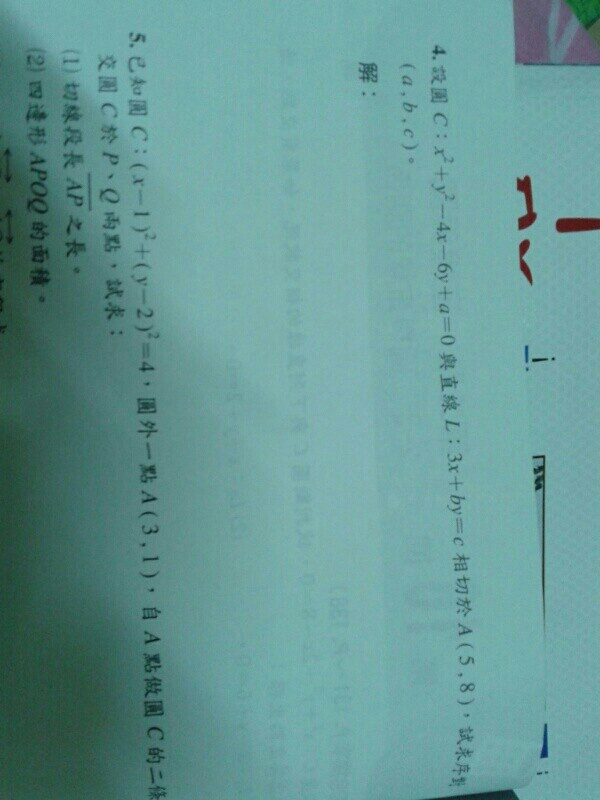 4. 設圓 C：x²+y²−4x−6y+a=0 與直線 L：3x+by=c 相切於 A(5,8)，試求序對
(a,b,c)。
解：
5. 已知圓 C：(x−1)²+(y−2)²=4，圓外一點 A(3,1)，自 A 點做圓 C 的二條
交圓 C 於 P、Q 兩點，試求：
(1) 切線段長 A̅P̅ 之長。
(2) 四邊形 APOQ 的面積。